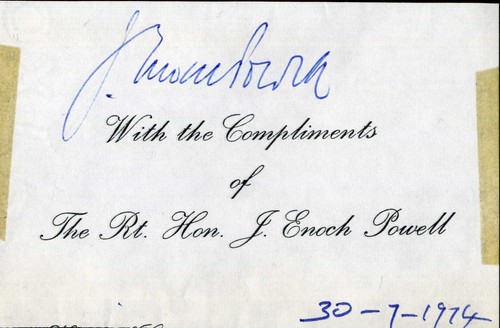 J. Enoch Powell
With the Compliments
of
The Rt. Hon. J. Enoch Powell
30-7-1974